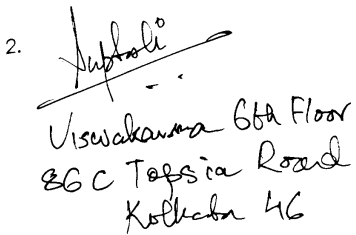 2.
Viswakarma 6th Floor
86C Topsia Road
Kolkata 46